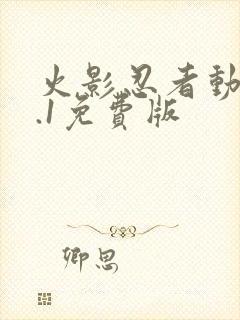 火影忍者動
.1免費版
卿思